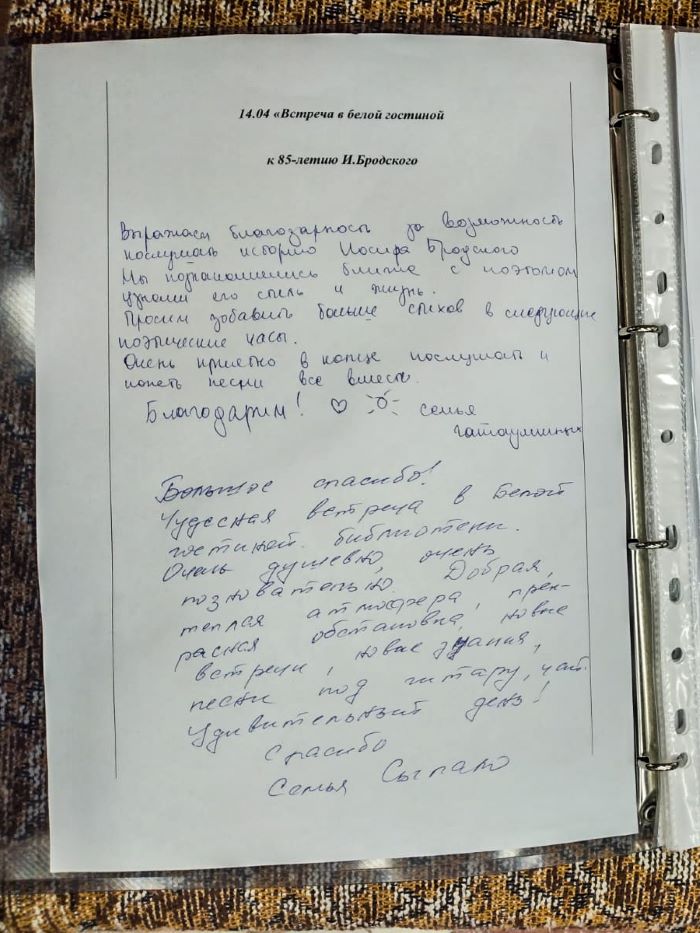 14.04 «Встреча в белой гостиной
к 85-летию И.Бродского
Выражаем благодарность за возможность
послушать историю Иосифа Бродского
Мы познакомились ближе с поэтом
узнали его стиль и жизнь.
Просим добавить больше стихов в следующие
поэтические часы.
Очень приятно в конце послушать и
попеть песни все вместе.
Благодарим! семья
Большое спасибо!
Чудесная встреча в Белой
гостиной библиотеки.
Очень душевно, очень
познавательно. Добрая,
теплая атмосфера, прек-
расная обстановка, новые
встречи, новые знания,
песни под гитару, чай.
Удивительный день!
Спасибо
Семья